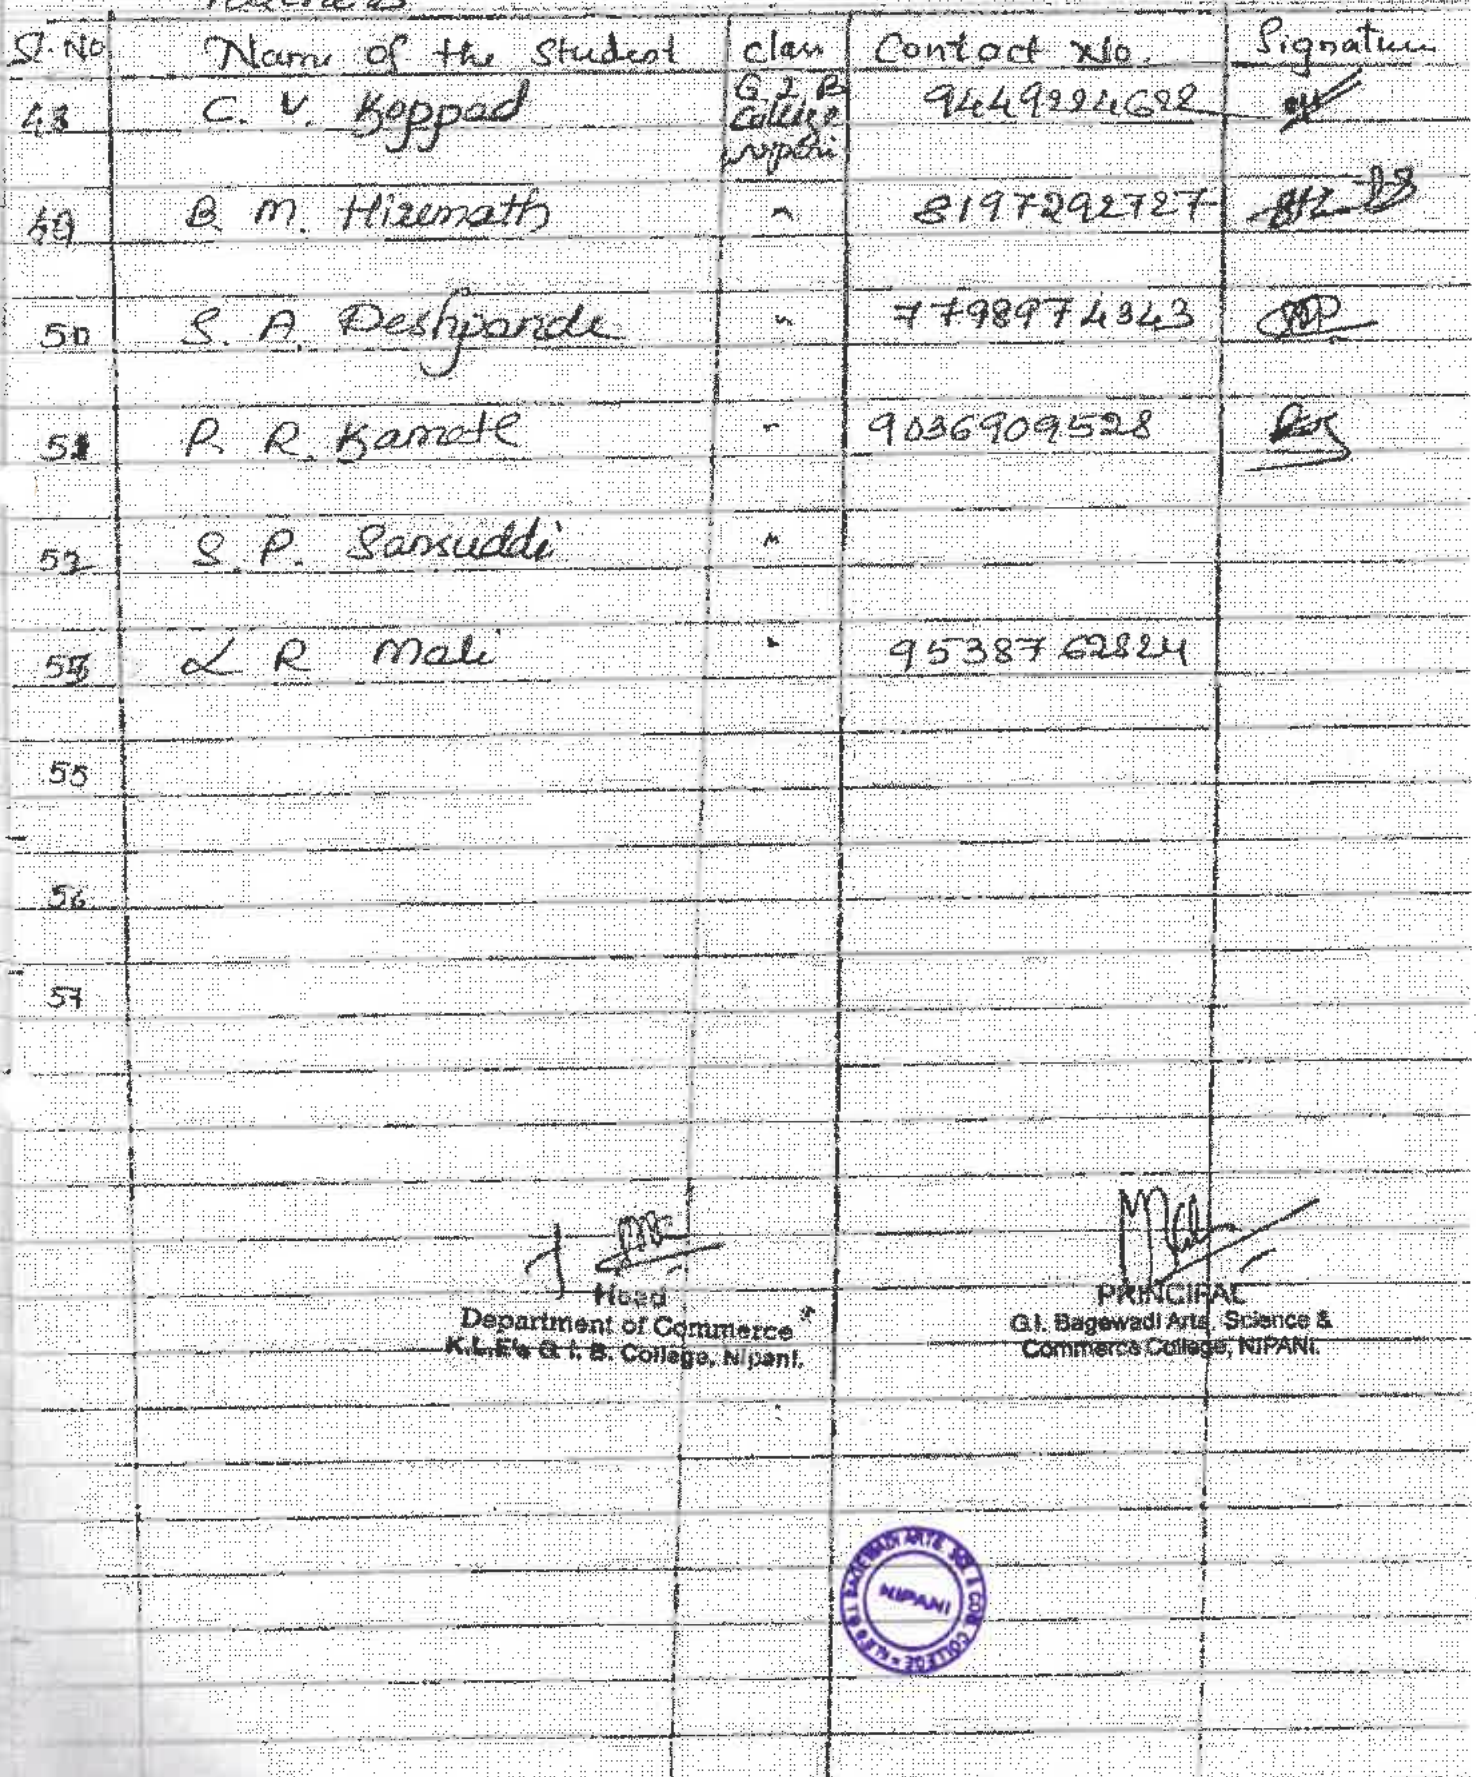 Sl. No Name of the Student class Contact No. Signature
48 C. V. Koppad G I B College Nipani 9449224622
49 B. M. Hiremath " 8197292727
50 S. A. Deshpande " 7798974343
51 P. R. Kamate " 9036909528
52 S. P. Sansuddi "
L R Mali " 9538762824
55
56
57
Head
Department of Commerce
K.L.E's G. I. B. College, Nipani.
PRINCIPAL
G.I. Bagewadi Arts, Science &
Commerce College, NIPANI.
K.L.E'S G I BAGEWADI ARTS, SCI & COM. COLLEGE
NIPANI